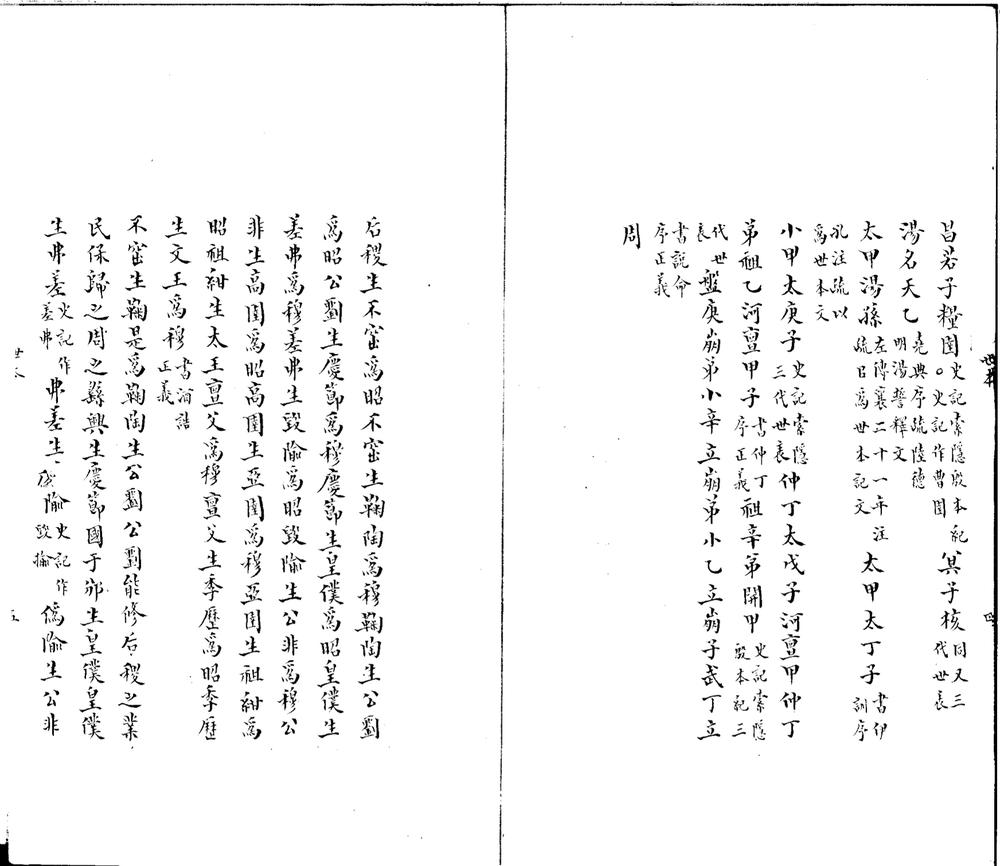 昌若子糧圉史記索隱殷本紀。史記作曹圉冥子核同又三代世表
湯名天乙堯典序疏陸德明湯誓釋文
太甲湯孫左傳襄二十一年注疏曰爲世本記文太甲太丁子書伊訓序
孔注疏以爲世本文
小甲太庚子史記索隱三代世表仲丁太戊子河亶甲仲丁
弟祖乙河亶甲子書仲丁序正義祖辛弟開甲史記索隱殷本紀三
代世表盤庚崩弟小辛立崩弟小乙立崩子武丁立
書說命序正義
周
后稷生不窋爲昭不窋生鞠陶爲穆鞠陶生公劉
爲昭公劉生慶節爲穆慶節生皇僕爲昭皇僕生
差弗爲穆差弗生毀隃爲昭毀隃生公非爲穆公
非生高圉爲昭高圉生亞圉爲穆亞圉生祖紺爲
昭祖紺生太王亶父爲穆亶父生季歷爲昭季歷
生文王爲穆書酒誥正義
不窋生鞠是爲鞠陶生公劉公劉能修后稷之業
民保歸之周之繇興生慶節國于邠生皇僕皇僕
生弗差史記作差弗弗差生隃史記作毀揄僞隃生公非
世本
四
世本
五